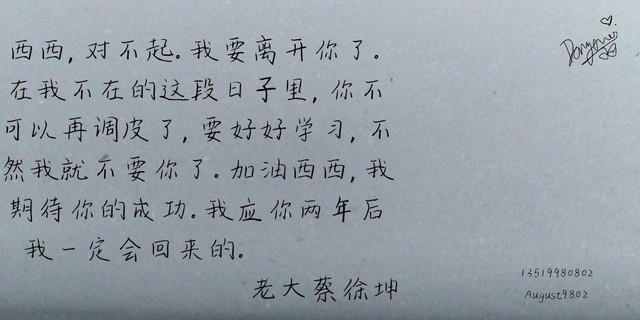 西西，对不起。我要离开你了。
在我不在的这段日子里，你不
可以再调皮了，要好好学习，不
然我就不要你了。加油西西，我
期待你的成功。我应你两年后
我一定会回来的。
老大蔡徐坤
13519980802
August9802